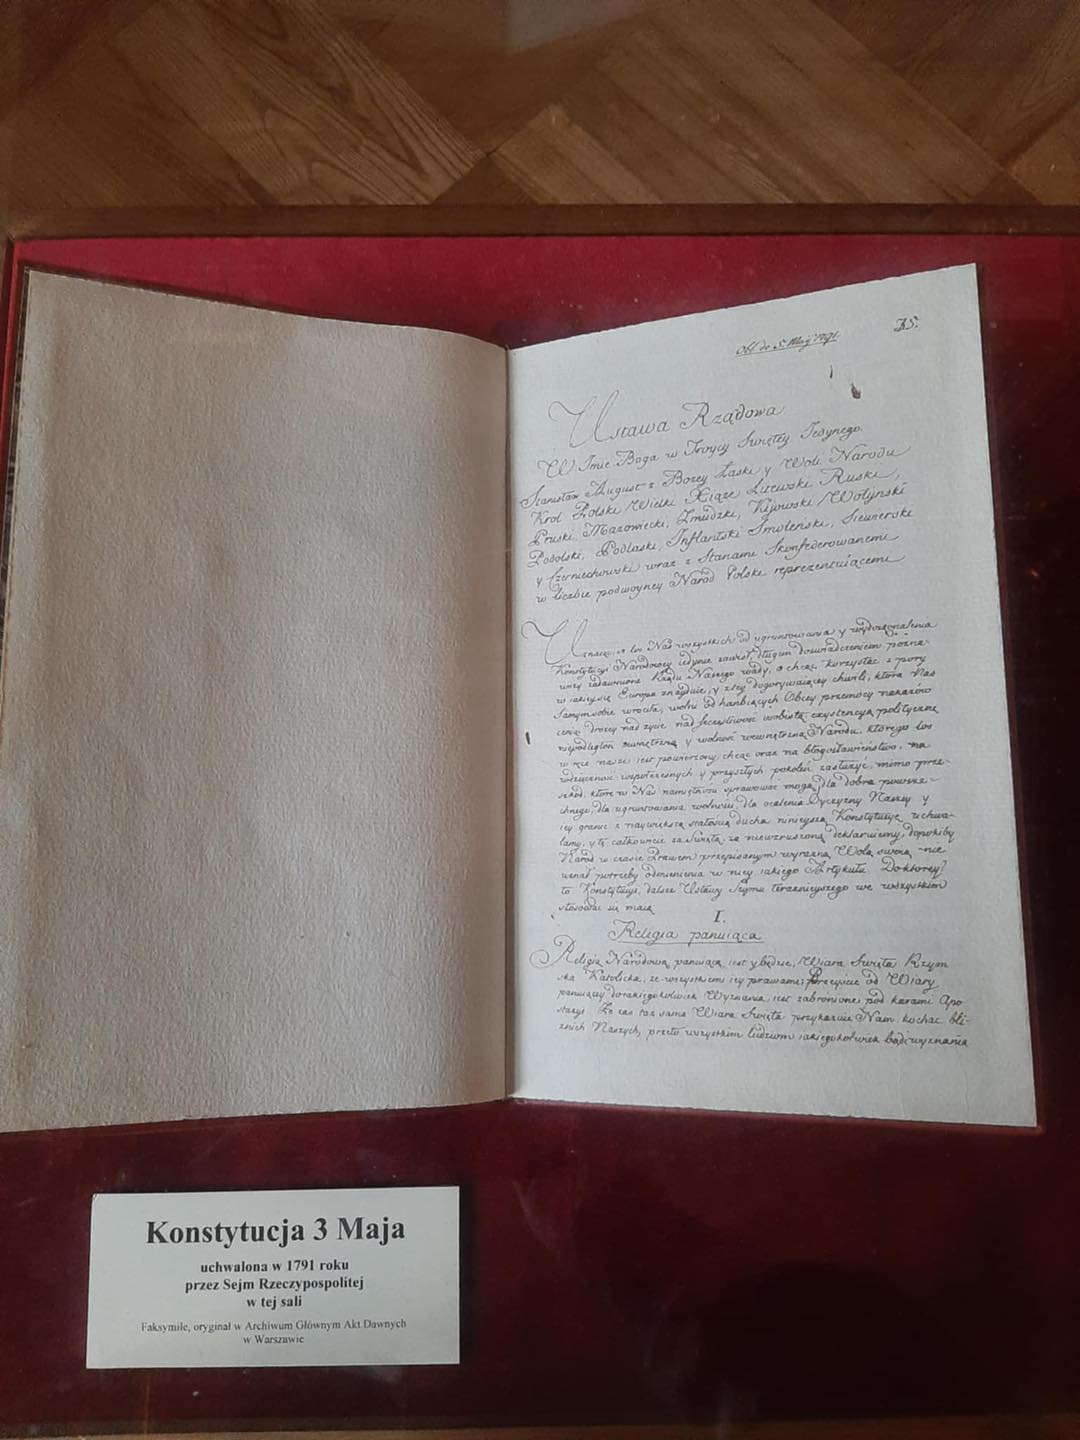 Obl. de 5. Maij 1791.
35.
Ustawa Rządowa
W Imie Boga w Troycy Swiętey Iedynego.
Stanisław August z Bożey Łaski y Woli Narodu
Krol Polski Wielki Xiąże Litewski Ruski,
Pruski, Mazowiecki, Zmudzki, Kijowski Wołyński
Podolski, Podlaski, Inflantski Smolenski, Siewierski
y Czerniechowski wraz z Stanami Skonfederowanemi
w liczbie podwoyney Narod Polski reprezentuiącemi
Uznaiąc, iż los Nas wszystkich od ugruntowania y wydoskonalenia
Konstytucyi Narodowey iedynie zawisł, długim doswiadczeniem pozna-
wszy zadawnione Rządu Naszego wady, a chcąc korzystać z pory
w iakiey się Europa znayduie, y z tey dogorywaiącey chwili, ktora Nas
samym sobie wrociła, wolni od hanbiących Obcey przemocy nakazow
ceniąc drożey nad życie, nad szczęśliwość osobistą exystencyą polityczną
niepodległość zewnętrzną y wolność wewnętrzną Narodu, ktorego los
w ręce nasze iest powierzony, chcąc oraz na błogosławieństwo, na
wdzięczność wspołczesnych y przyszłych pokoleń zasłużyć, mimo prze-
szkod, ktore w Nas namiętności sprawować mogą, dla dobra powsze-
chnego, dla ugruntowania wolności, dla ocalenia Oyczyzny Naszey y
iey granic z naywiększą stałością ducha ninieyszą Konstytucyę uchwa-
lamy, y tę całkowicie za świętą, za niewzruszoną deklaruiemy, dopokiby
Narod w czasie Prawem przepisanym wyrazną Wolą swoią nie
uznał potrzeby odmienienia w niey iakiego Artykułu. Do ktorey
to Konstytucyi, dalsze Ustawy Seymu teraznieyszego we wszystkiem
stosować się maią
I.
Religia panuiąca
Religią Narodową panuiącą iest y będzie, Wiara Swięta Rzym
ska Katolicka, ze wszystkiemi iey prawami; Przeyście od Wiary
panuiącey do iakiegokolwiek Wyznania, iest zabronione pod karami Apo
stazyi. Że zas taż sama Wiara Swięta przykazuie Nam kochać bli-
źnich Naszych, przeto wszystkim ludziom iakiegokolwiek bądź wyznania
Konstytucja 3 Maja
uchwalona w 1791 roku
przez Sejm Rzeczypospolitej
w tej sali
Faksymile, oryginał w Archiwum Głównym Akt Dawnych
w Warszawie